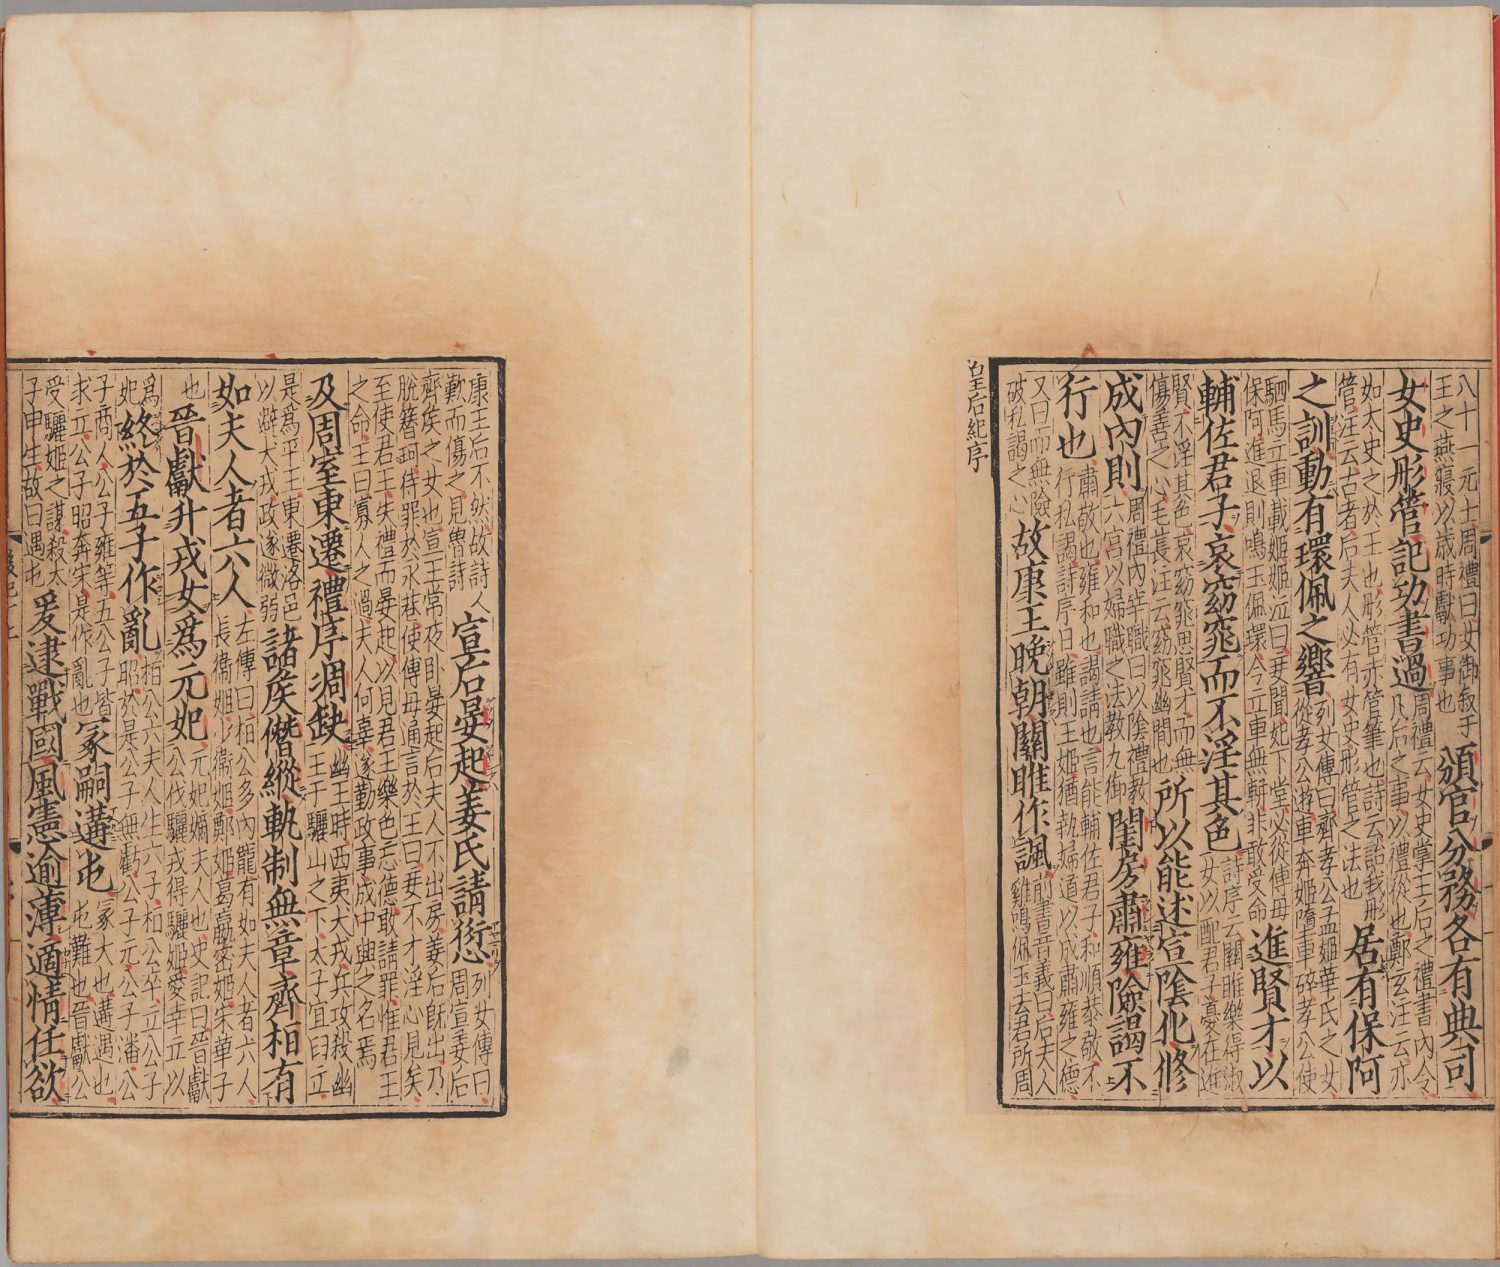 八十一元士周禮曰女御敘于王之燕寢以歲時獻功事也頒官分務各有典司
女史彤管記功書過周禮云女史掌王后之禮書內令凡后之事以禮從也鄭玄注云亦
如太史之於王也彤管赤管筆也詩云詒我彤管注云古者后夫人必有女史彤管之法也居有保阿
之訓動有環佩之響列女傳曰齊孝公孟姬華氏之女從孝公遊車奔姬墮車碎孝公使
駟馬立車載姬姬泣曰妾聞妃下堂必從傅母保阿進退則鳴玉佩環今立車無軿非敢受命進賢才以
輔佐君子哀窈窕而不淫其色詩序云關雎樂得淑女以配君子憂在進
賢不淫其色哀窈窕思賢才而無傷善之心毛萇注云窈窕幽閒也所以能述宣陰化修
成內則周禮內宰職曰以陰禮教六宮以婦職之法教九御閨房肅雍險謁不
行也肅敬也雍和也謁請也言能輔佐君子和順恭敬不行私謁詩序曰雖則王姬猶執婦道以成肅雍之德
又曰而無險詖私謁之心故康王晚朝關雎作諷前書音義曰后夫人雞鳴佩玉去君所周
皇后紀序
康王后不然故詩人歎而傷之見魯詩宣后晏起姜氏請愆列女傳曰周宣姜后
齊侯之女也宣王常夜臥晏起后夫人不出房姜后既出乃脫簪珥待罪於永巷使傅母通言於王曰妾不才淫心見矣
至使君王失禮而晏起以見君王樂色忘德敢請罪惟君王之命王曰寡人之過夫人何辜遂勤政事成中興之名焉
及周室東遷禮序凋缺幽王時西夷犬戎兵攻殺幽王于驪山之下太子宜臼立
是爲平王東遷洛邑以避犬戎政遂微弱諸侯僭縱軌制無章齊桓有
如夫人者六人左傳曰桓公多內寵有如夫人者六人長衛姬少衛姬鄭姬葛嬴密姬宋華子
也晉獻升戎女爲元妃元妃嫡夫人也史記曰晉獻公伐驪戎得驪姬愛幸立以
爲妃終於五子作亂桓公六夫人生六子桓公卒立公子昭於是公子無虧公子元公子潘公
子商人公子雍等五公子皆求立公子昭奔宋是作亂也冢嗣遘屯冢大也遘遇也屯難也晉獻公
受驪姬之謀殺太子申生故曰遇屯爰逮戰國風憲逾薄適情任欲